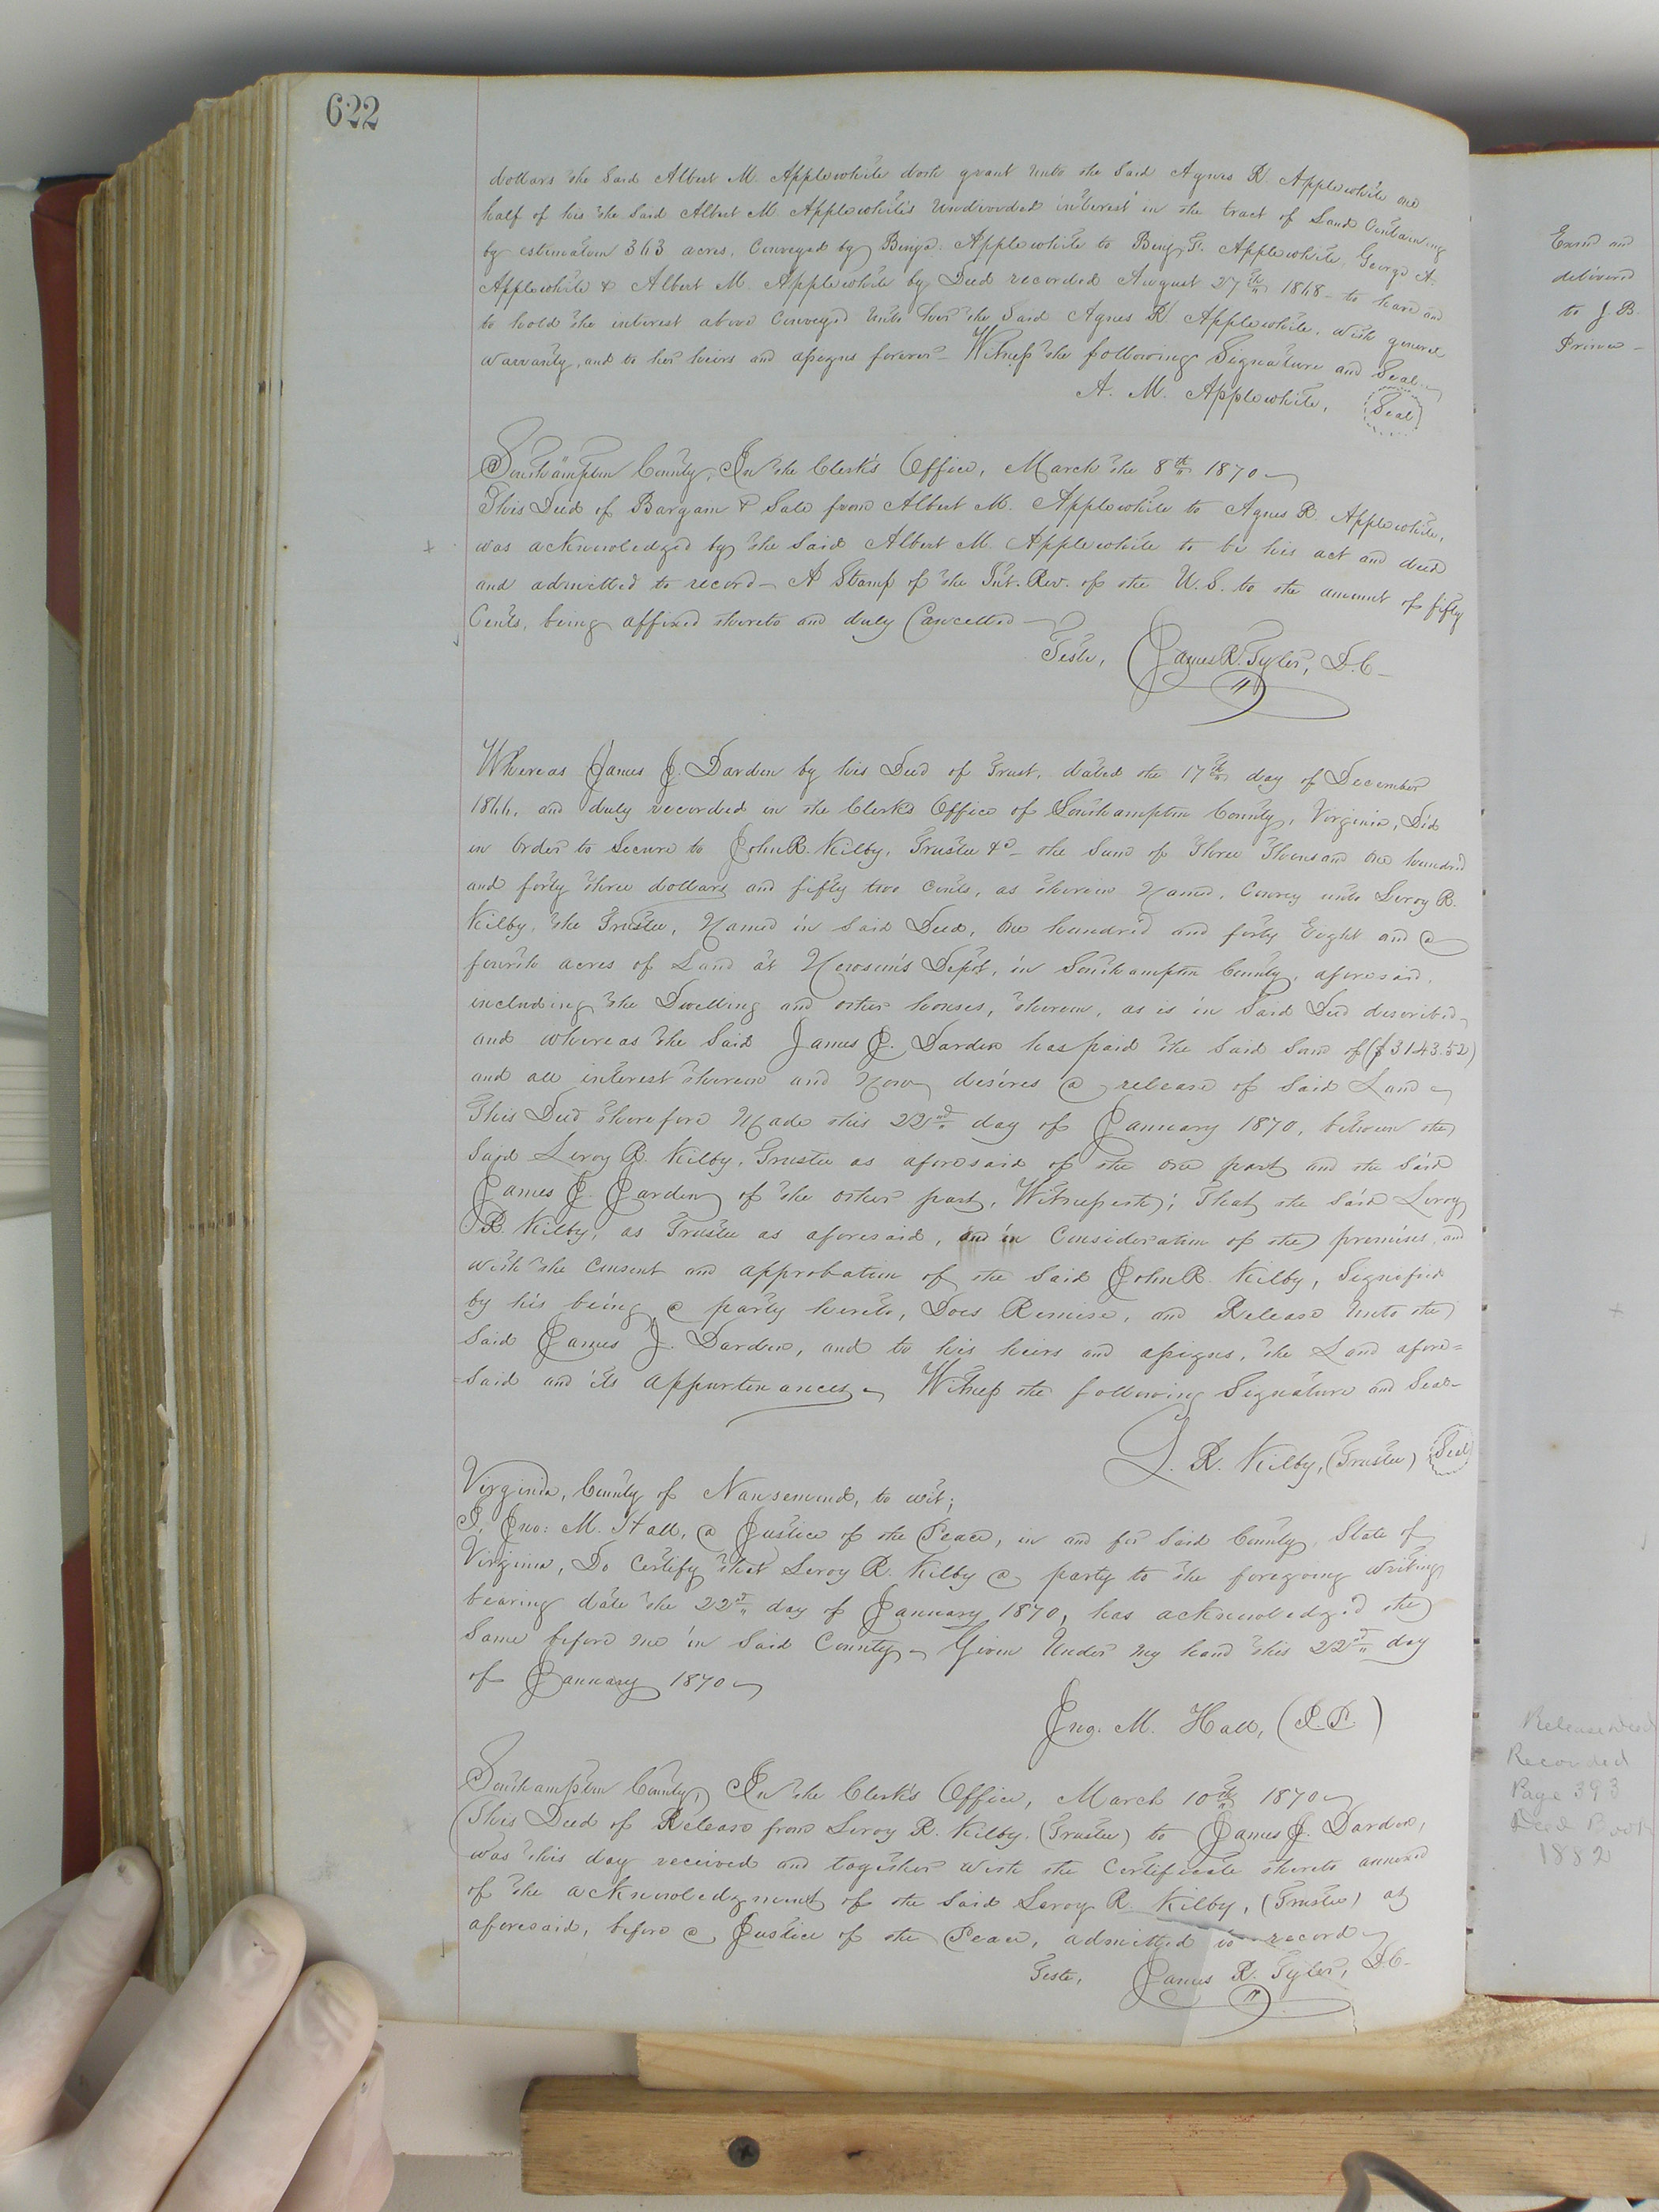 622
dollars the Said Albert M. Applewhite doth grant unto the Said Agnes R. Applewhite one
half of his the Said Albert M. Applewhite's undivided interest in the tract of Land Containing
by estimation 363 acres, Conveyed by Benja. Applewhite to Benj. F. Applewhite, George A.
Applewhite & Albert M. Applewhite by Deed recorded August 27th 1868 – to have and
to hold the interest above Conveyed unto her the Said Agnes R. Applewhite, with general
warranty, and to her heirs and assigns forever – Witness the following Signature and Seal –
A. M. Applewhite, (Seal)
Southampton County, In the Clerk's Office, March the 8th 1870 –
This Deed of Bargain & Sale from Albert M. Applewhite to Agnes R. Applewhite,
was acknowledged by the Said Albert M. Applewhite to be his act and deed
and admitted to record – A Stamp of the Int. Rev. of the U.S. to the amount of fifty
Cents, being affixed thereto and duly Cancelled –
Teste, James R. Tyler, D.C –
Whereas James J. Darden by his Deed of Trust, dated the 17th day of December
1866, and duly recorded in the Clerk's Office of Southampton County, Virginia, Did
in Order to Secure to John R. Kilby, Trustee &c – the Sum of Three Thousand One hundred
and forty three dollars and fifty two Cents, as therein Named, Convey unto Leroy R.
Kilby, the Trustee, Named in Said Deed, One hundred and forty Eight and a
fourth acres of Land at Newsom's Depot, in Southampton County, aforesaid,
including the Dwelling and other houses, thereon, as is in Said Deed described –
and whereas the Said James J. Darden has paid the Said Sum of ($3143.52)
and all interest thereon and Now desires a release of Said Land –
This Deed therefore Made this 22nd day of January 1870, between the
Said Leroy R. Kilby, Trustee as aforesaid of the one part and the Said
James J. Darden of the other part, Witnesseth; That the Said Leroy
R. Kilby, as Trustee as aforesaid, and in Consideration of the premises, and
with the Consent and approbation of the Said John R. Kilby, Signified
by his being a party hereto, Does Remise, and Release unto the
Said James J. Darden, and to his heirs and assigns, the Land afore=
=Said and its appurtenances – Witness the following Signature and Seal –
L. R. Kilby, (Trustee) (Seal)
Virginia, County of Nansemond, to wit;
I, Jno: M. Hall, a Justice of the Peace, in and for Said County, State of
Virginia, Do Certify that Leroy R. Kilby a party to the foregoing writing
bearing date the 22d day of January 1870, has acknowledged the
Same before me in Said County – Given Under my hand this 22d day
of January 1870 –
Jno. M. Hall, (J.P.)
Southampton County, In the Clerk's Office, March 10th 1870 –
This Deed of Release from Leroy R. Kilby, (Trustee) to James J. Darden,
was this day received and together with the Certificate thereto annexed
of the acknowledgment of the Said Leroy R. Kilby, (Trustee) as
aforesaid, before a Justice of the Peace, admitted to record –
Teste, James R. Tyler, D.C –
Exmd and
delivered
to J. B.
Prince –
Release Deed
Recorded
Page 393
Deed Book
1882